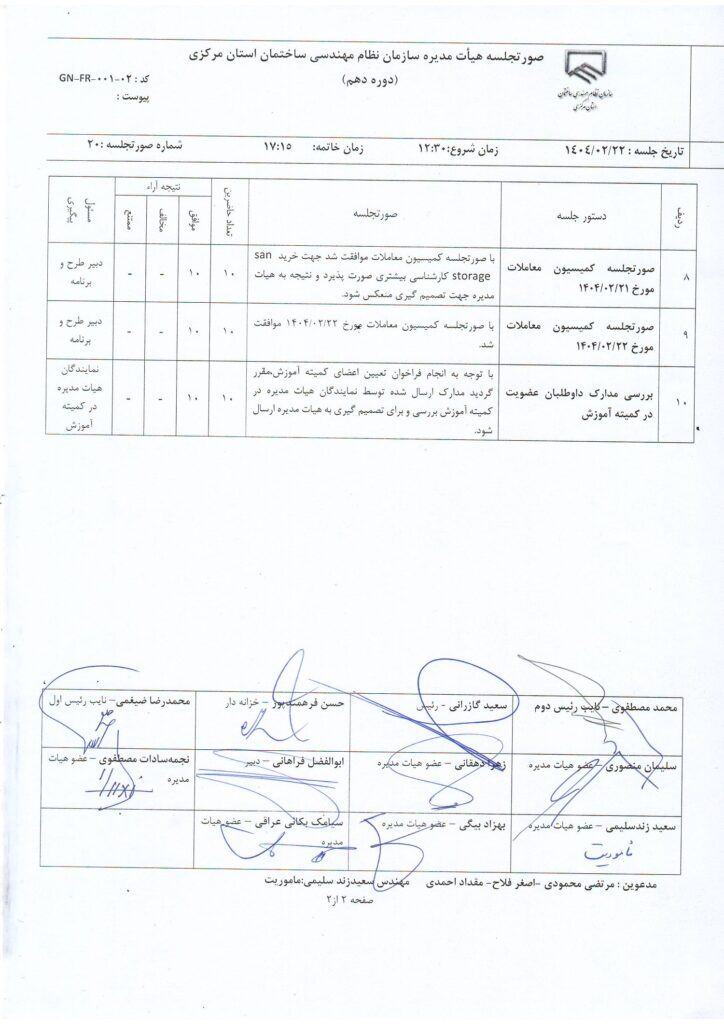 صورتجلسه هیأت مدیره سازمان نظام مهندسی ساختمان استان مرکزی
(دوره دهم)
کد : GN-FR-۰۰۱-۰۲
پیوست :
سازمان نظام مهندسی ساختمان
استان مرکزی
تاریخ جلسه : ۱۴۰۴/۰۲/۲۲ زمان شروع:۱۲:۳۰ زمان خاتمه: ۱۷:۱۵ شماره صورتجلسه :۲۰
ردیف دستور جلسه صورتجلسه تعداد حاضرین نتیجه آراء مسئول پیگیری
موافق مخالف ممتنع
۸
صورتجلسه کمیسیون معاملات
مورخ ۱۴۰۴/۰۲/۲۱
با صورتجلسه کمیسیون معاملات موافقت شد جهت خرید san
storage کارشناسی بیشتری صورت پذیرد و نتیجه به هیات
مدیره جهت تصمیم گیری منعکس شود.
۱۰ ۱۰ - -
دبیر طرح و
برنامه
۹
صورتجلسه کمیسیون معاملات
مورخ ۱۴۰۴/۰۲/۲۲
با صورتجلسه کمیسیون معاملات مورخ ۱۴۰۴/۰۲/۲۲ موافقت
شد.
۱۰ ۱۰ - -
دبیر طرح و
برنامه
۱۰
بررسی مدارک داوطلبان عضویت
در کمیته آموزش
با توجه به انجام فراخوان تعیین اعضای کمیته آموزش،مقرر
گردید مدارک ارسال شده توسط نمایندگان هیات مدیره در
کمیته آموزش بررسی و برای تصمیم گیری به هیات مدیره ارسال
شود.
۱۰ ۱۰ - -
نمایندگان
هیات مدیره
در کمیته
آموزش
محمد مصطفوی – نایب رئیس دوم
سعید گازرانی - رئیس
حسن فرهمندپور – خزانه دار
محمدرضا ضیغمی – نایب رئیس اول
سلیمان منصوری – عضو هیات مدیره
زهرا دهقانی – عضو هیات مدیره
ابوالفضل فراهانی – دبیر
نجمه‌سادات مصطفوی – عضو هیات
مدیره
سعید زندسلیمی – عضو هیات مدیره
مأموریت
بهزاد بیگی – عضو هیات مدیره
سیامک یکانی عراقی – عضو هیات
مدیره
مدعوین : مرتضی محمودی –اصغر فلاح– مقداد احمدی مهندس سعیدزند سلیمی:ماموریت
صفحه ۲ از۲